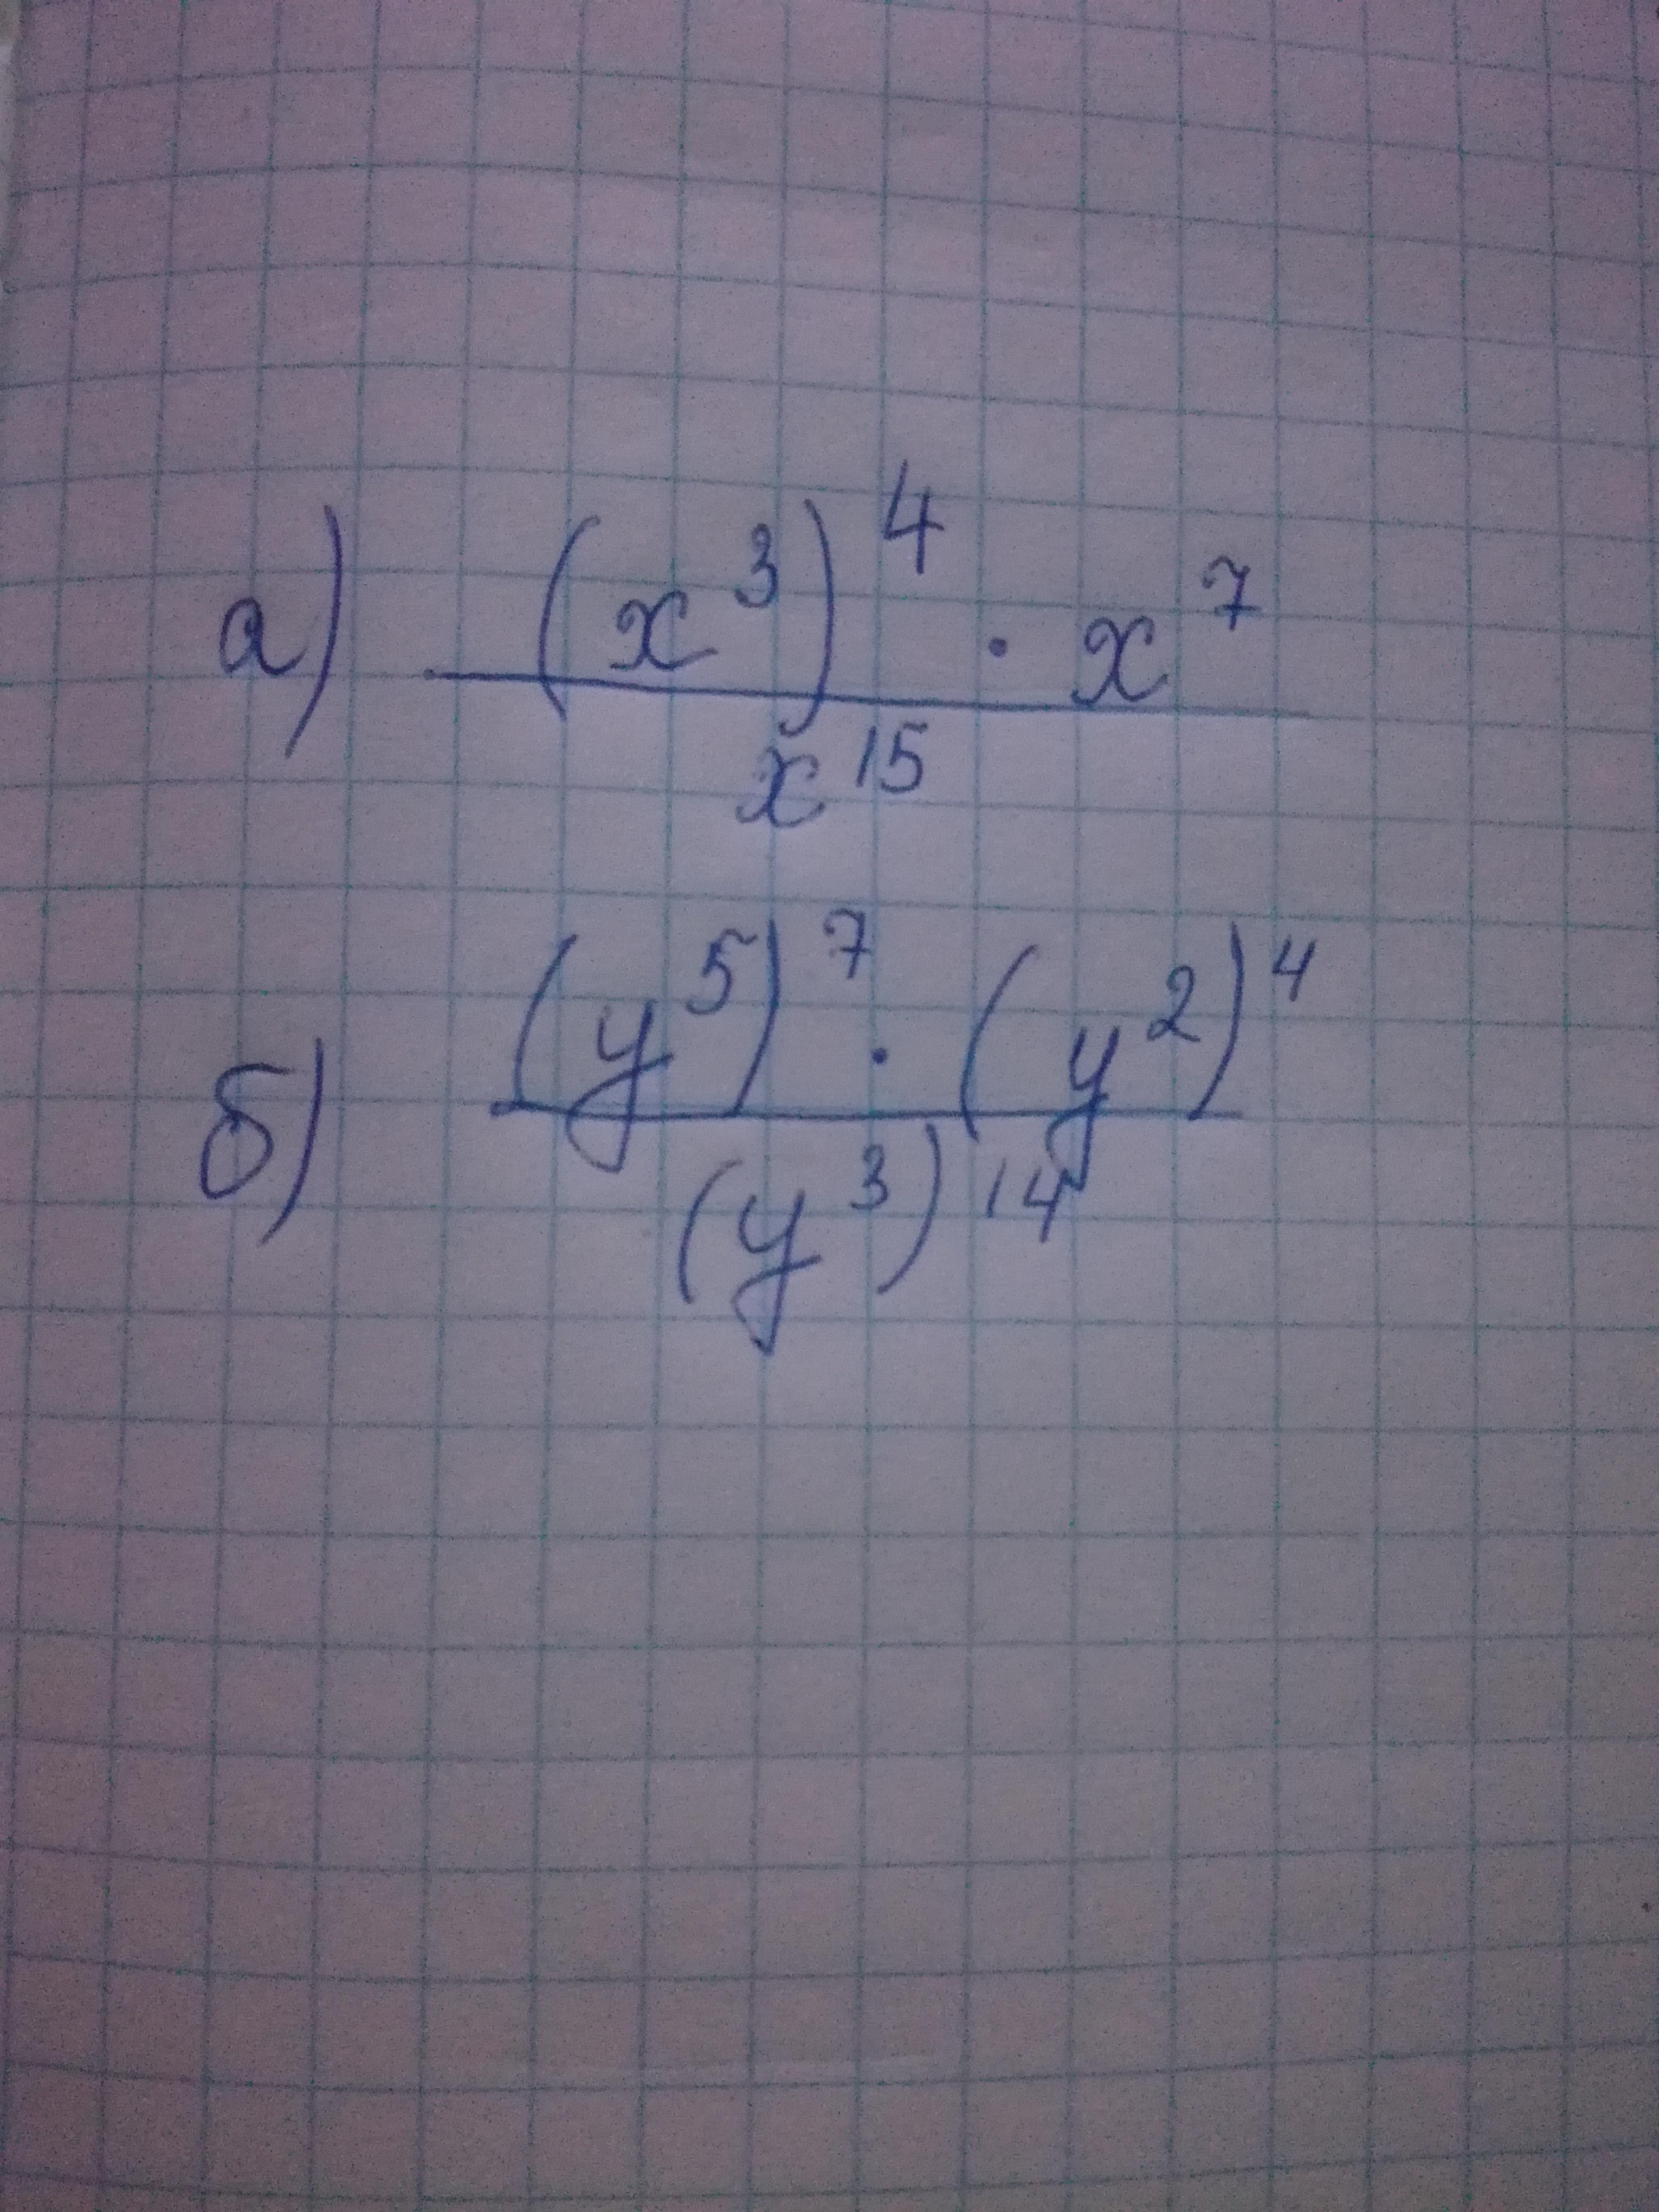 а) (x³)⁴ · x⁷
x¹⁵
б) (y⁵)⁷ · (y²)⁴
(y³)¹⁴